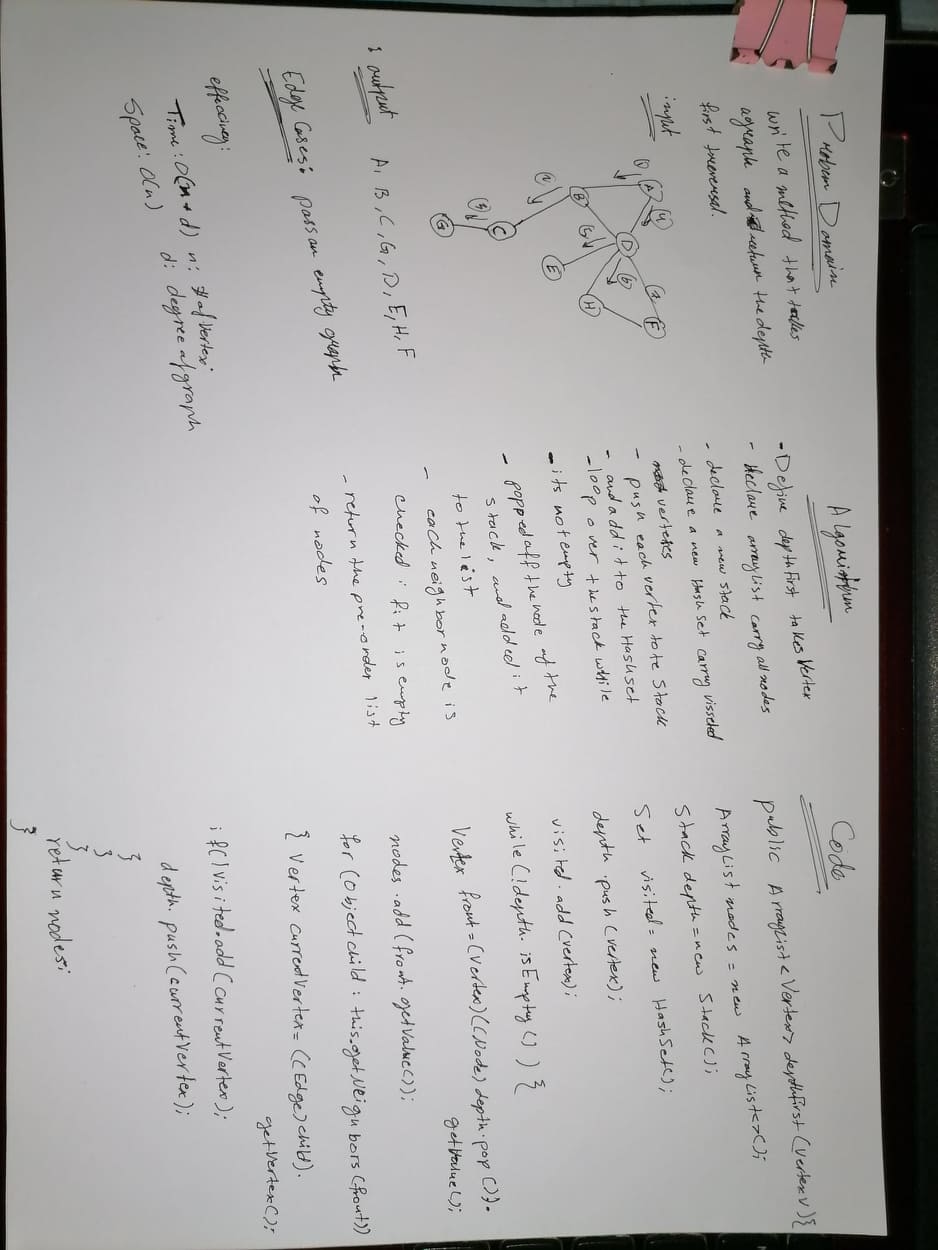 Problem Domain
write a method that takes
agraph and return the depth
first traversal.
input
A
B
D
C
G
E
H
F
output A, B, C, G, D, E, H, F
Edge Cases: pass an empty graph
efficiency:
Time: O(n + d) n: # of vertex
d: degree of graph
Space: O(n)
Algorithm
- Define depthFirst takes Vertex
- declare arraylist carry all nodes
- declare a new stack
- declare a new Hash set carry visseted
vertexes
- push each vertex to te Stack
- and add it to the Hashset
- loop over the stack while
- its not empty
- popped off the node of the
stack, and added it
to the list
- each neighbor node is
checked if it is empty
- return the pre-order list
of nodes
Code
public ArrayList<Vertex> depthfirst (vertex v){
ArrayList nodes = new ArrayList<>();
Stack depth = new Stack();
Set visited = new HashSet();
depth.push(vertex);
visited.add(vertex);
while(!depth.isEmpty()) {
Vertex front = (vertex)((Node)depth.pop()).
getValue();
nodes.add(front.getValue());
for (Object child : this.getNeighbors(front))
{ Vertex currentVertex = ((Edge)child).
getVertex();
if(!Visited.add(currentVertex);
depth.push(currentVertex);
}
}
}
return nodes;
}